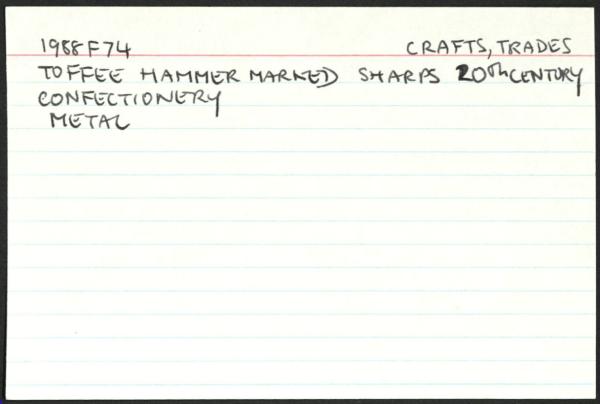 1988 F74 CRAFTS, TRADES
TOFFEE HAMMER MARKED SHARPS 20th CENTURY
CONFECTIONERY
METAL